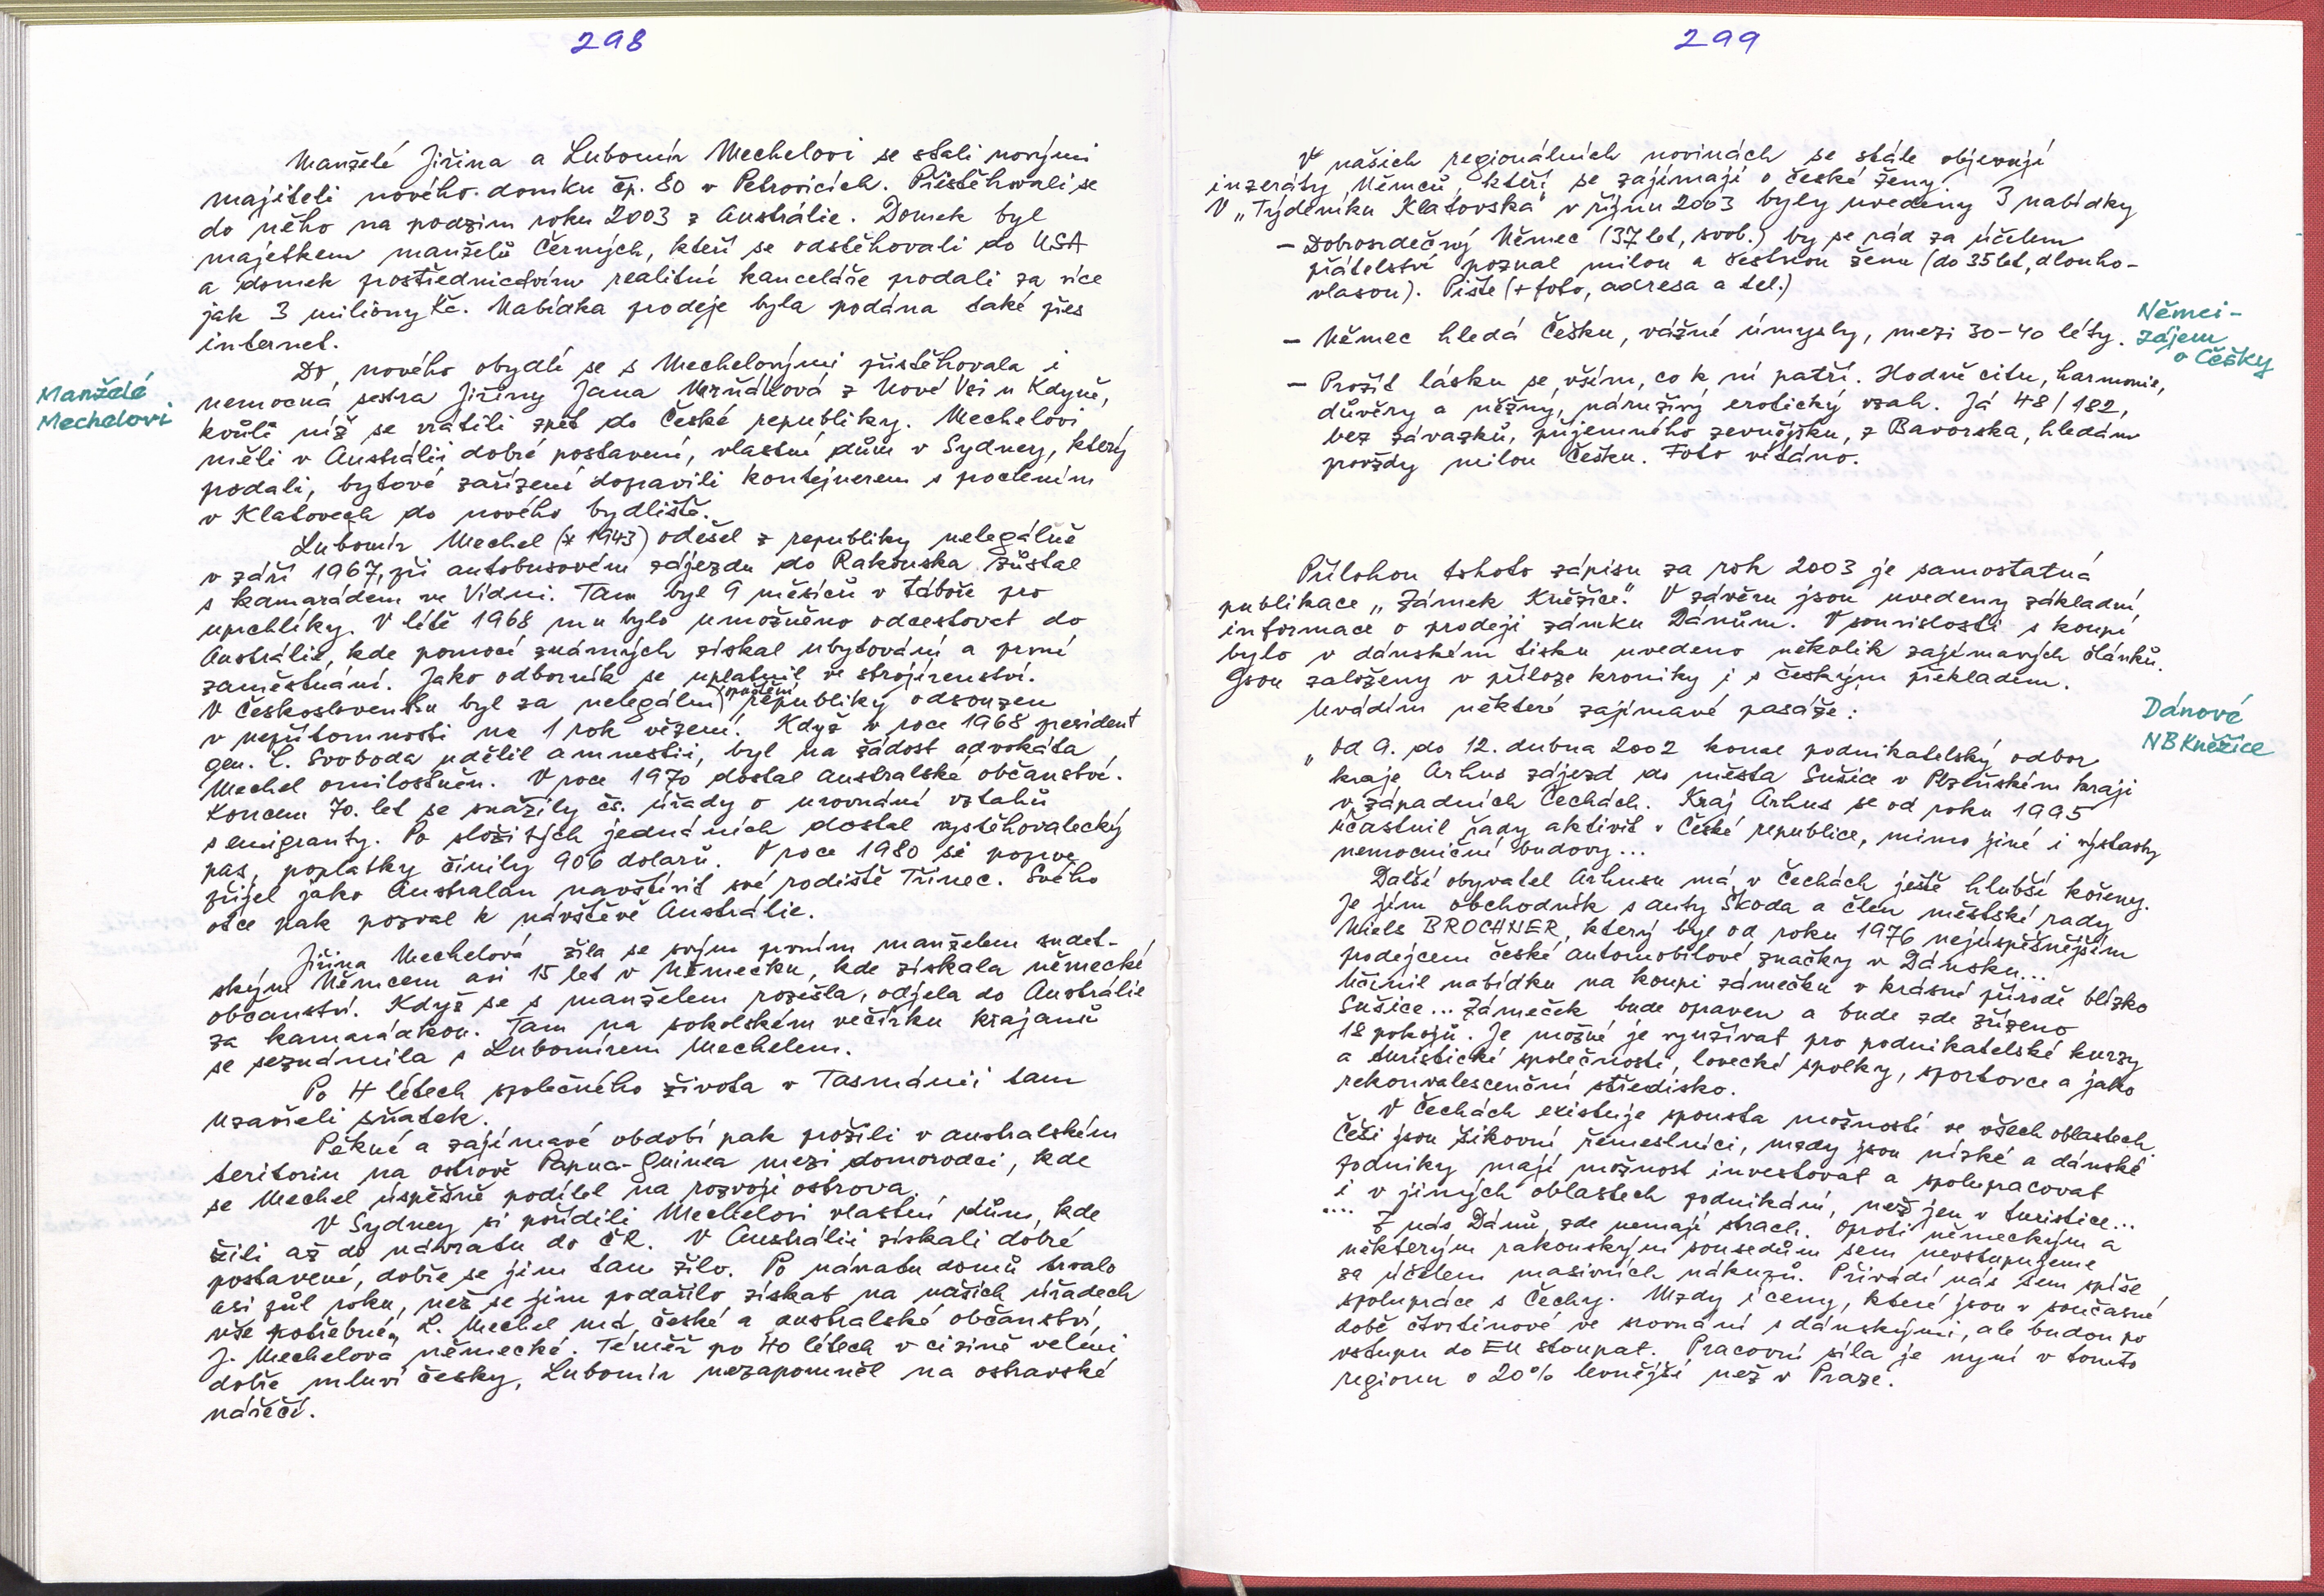 298
Manželé Jiřina a Lubomír Mechelovi se stali novými
majiteli nového domku čp. 80 v Petrovicích. Přistěhovali se
do něho na podzim roku 2003 z Austrálie. Domek byl
majetkem manželů Černých, kteří se odstěhovali do USA
a domek prostřednictvím realitní kanceláře prodali za více
jak 3 milióny Kč. Nabídka prodeje byla podána také přes
internet.
Do nového obydlí se s Mechelovými přistěhovala i
nemocná sestra Jiřiny Jana z Nové Vsi u Kdyně,
kvůli níž se vrátili zpět do České republiky. Mechelovi
měli v Austrálii dobré postavení, vlastní dům v Sydney, který
prodali, bytové zařízení dopravili kontejnerem s proclením
v Klatovech do nového bydliště.
Manželé
Mechelovi
Lubomír Mechel (* 1943) odešel z republiky nelegálně
v září 1967, při autobusovém zájezdu do Rakouska zůstal
s kamarádem ve Vídni. Tam byl 9 měsíců v táboře pro
uprchlíky. V létě 1968 mu bylo umožněno odcestovat do
Austrálie, kde pomocí známých získal ubytování a první
zaměstnání. Jako odborník se uplatnil ve strojírenství.
V Československu byl za nelegální opuštění republiky odsouzen
v nepřítomnosti na 1 rok vězení. Když v roce 1968 president
gen. L. Svoboda udělil amnestii, byl na žádost advokáta
Mechel omilostněn. V roce 1970 dostal australské občanství.
Koncem 70. let se snažily čs. úřady o urovnání vztahů
s emigranty. Po složitých jednáních dostal vystěhovalecký
pas, poplatky činily 906 dolarů. V roce 1980 se poprve
přijel jako Australan navštívit své rodiště Třinec. Svého
otce pak pozval k návštěvě Austrálie.
Jiřina Mechelová žila se svým prvním manželem sudet-
ským Němcem asi 15 let v Německu, kde získala německé
občanství. Když se s manželem rozešla, odjela do Austrálie
za kamarádkou. Tam na sokolském večírku krajanů
se seznámila s Lubomírem Mechelem.
Po 4 létech společného života v Tasmánii tam
uzavřeli sňatek.
Pěkné a zajímavé období pak prožili v australském
teritoriu na ostrově Papua-Guinea mezi domorodci, kde
se Mechel úspěšně podílel na rozvoji ostrova.
V Sydney si pořídili Mechelovi vlastní dům, kde
žili až do návratu do ČR. V Austrálii získali dobré
postavení, dobře se jim tam žilo. Po návratu domů trvalo
asi půl roku, než se jim podařilo získat na našich úřadech
vše potřebné. L. Mechel má české a australské občanství,
J. Mechelová německé. Téměř po 40 létech v cizině velmi
dobře mluví česky, Lubomír nezapomněl na ostravské
nářečí.
299
V našich regionálních novinách se stále objevují
inzeráty Němců, kteří se zajímají o české ženy.
V „Týdeníku Klatovska" v říjnu 2003 byly uvedeny 3 nabídky
– Dobrosrdečný Němec (37 let, svob.) by se rád za účelem
přátelství poznal milou a šestnou ženu (do 35 let, dlouho-
vlasou). Pište (+ foto, adresa a tel.)
– Němec hledá Češku, vážné úmysly, mezi 30-40 léty.
Němci-
zájem
o Češky
– Prožít lásku se vším, co k ní patří. Hodně citu, harmonie,
důvěry a něžný, náruživý erotický vzah. Já 48/182,
bez závazků, příjemného zevnějšku, z Bavorska, hledám
provždy milou Češku. Foto vítáno.
Přílohou tohoto zápisu za rok 2003 je samostatná
publikace „Zámek Kněžice". V závěru jsou uvedeny základní
informace o prodeji zámku Dánům. V souvislosti s koupí
bylo v dánském tisku uvedeno několik zajímavých článků.
Jsou založeny v příloze kroniky i s českým překladem.
Uvádím některé zajímavé pasáže:
Dánové
NB Kněžice
„Od 9. do 12. dubna 2002 konal podnikatelský odbor
kraje Arhus zájezd do města Sušice v Plzeňském kraji
v západních Čechách. Kraj Arhus se od roku 1995
účastnil řady aktivit v České republice, mimo jiné i výstavby
nemocniční budovy...
Další obyvatel Arhusu má v Čechách ještě hlubší kořeny.
Je jím obchodník s auty Škoda a člen městské rady
Niels BROCHNER, který byl od roku 1976 nejúspěšnějším
prodejcem české automobilové značky v Dánsku...
Učinil nabídku na koupi zámečku v krásné přírodě blízko
Sušice... Zámeček bude opraven a bude zde zřízeno
18 pokojů. Je možné je využívat pro podnikatelské kurzy
a turistické společnosti, lovecké spolky, sportovce a jako
rekonvalescenční středisko.
V Čechách existuje spousta možností ve všech oblastech.
Češi jsou šikovní řemeslníci, mzdy jsou nízké a dánské
podniky mají možnost investovat a spolupracovat
i v jiných oblastech podnikání, než jen v turistice...
.... Z nás Dánů zde nemají strach. Oproti německým a
některým rakouským sousedům sem nevstupujeme
za účelem masivních nákupů. Přivádí nás sem spíše
spolupráce s Čechy. Mzdy i ceny, které jsou v současné
době čtvrtinové ve srovnání s dánskými, ale budou po
vstupu do EU stoupat. Pracovní síla je nyní v tomto
regionu o 20% levnější než v Praze.